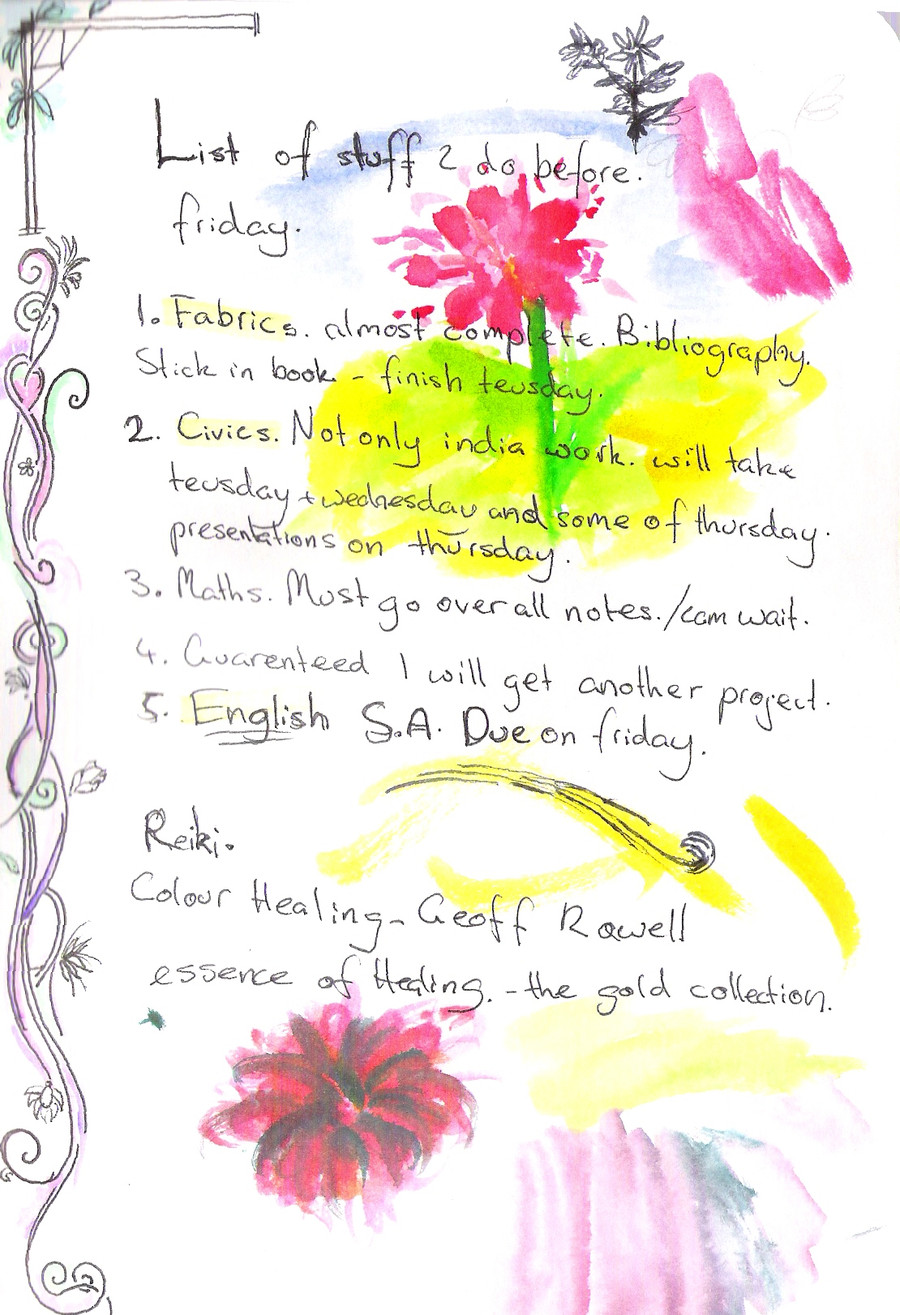 List of stuff 2 do before.
friday.
1. Fabrics. almost complete. Bibliography.
Stick in book - finish teusday.
2. Civics. Not only india work. will take
teusday + wednesday and some of thursday.
presentations on thursday.
3. Maths. Must go over all notes./can wait.
4. Guarenteed I will get another project.
5. English S.A. Due on friday.
Reiki.
Colour Healing - Geoff Rowell
essence of Healing. - the gold collection.